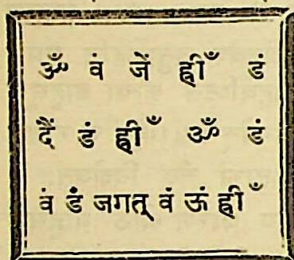 ॐ वं जें ह्रीँ डं
दैं डं ह्रीँ ॐ डं
वं डं जगत् वं ऊं ह्रीँ